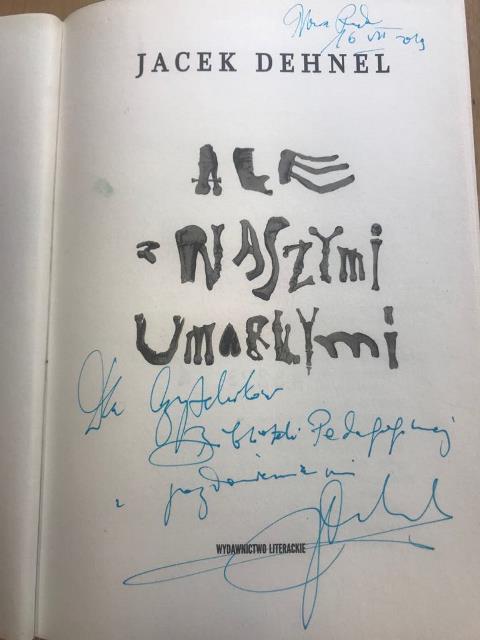 Nowa Ruda
16 VII 2019
JACEK DEHNEL
ALE
z NASZYMI
UMARŁYMI
Dla Czytelników
Biblioteki Pedagogicznej
z pozdrowieniami
WYDAWNICTWO LITERACKIE